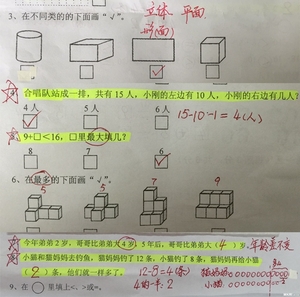 3、在不同类的下面画“√”。
立体 平面
形(面)
合唱队站成一排，共有 15 人，小刚的左边有 10 人，小刚的右边有几人？
4 人 5 人 6 人
15-10-1=4(人)
9+□＜16，□里最大填几？
8 7 6
6、在最多的下面画“√”。
5 5 7 9
今年弟弟 2 岁，哥哥比弟弟大 4 岁，5 年后，哥哥比弟弟大（4）岁。
年龄差不变
小猫和猫妈妈去钓鱼，猫妈妈钓了 12 条，小猫钓了 8 条，猫妈妈再给小猫
（2）条，他们就一样多了。
12-8=4(条)
4的一半：2
猫妈妈：
小猫：
9、在 里填上<、>或=。